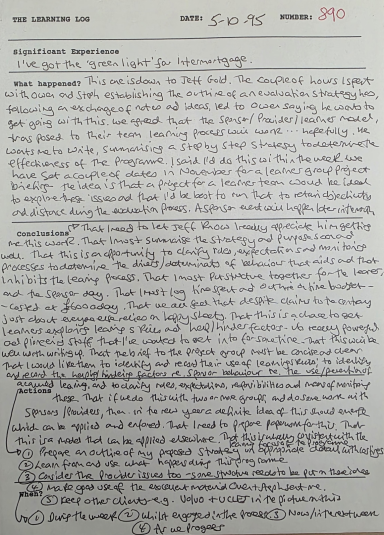 THE LEARNING LOG DATE: 5-10-95 NUMBER: 890
Significant Experience
I've got the 'green light' for Intermortgage.
What happened? This is down to Jeff Gold. The couple of hours I spent
with Owen and Steph establishing the outline of an evaluation strategy has,
following an exchange of notes and ideas, led to Owen saying he wants to
get going with this. We agreed that the Sponsor/Provider/learner model,
transposed to their team learning process will work ... hopefully. He
wants me to write, summarising a step by step strategy to determine the
effectiveness of the programme. I said I'd do this within the week. We
have set a couple of dates in November for a learner group project
briefing. The idea is that a project for a learner team would be ideal
to explore these issues and that I'd be best to run that to retain objectivity
and distance during the evaluation process. A sponsor event will happen later
Conclusions That I need to let Jeff know I really appreciate him getting
me this work. That I must summarise the strategy and purpose
well. That this is an opportunity to clarify roles, expectations and monitoring
processes to determine the of behaviour that aids and that
inhibits the learning process. That I must put together for the learner,
and the sponsor day. That I must log time spent and outline a time budget -
- costed at a day. That we all that despite claims to
just about everyone else relies on happy sheets. That this is a chance to get
learners exploring learning styles and help/hinder factors - so really powerful
and pioneering stuff that I've wanted to get into for some time. That this will be
well worth writing up. That the brief to the project group must be concise and clear
that I would like them to identify and record their use of learning styles, to identify
and record the helping/hindering factors re sponsor behaviour re the use/
acquired learning, and to clarify roles, expectations, responsibilities and means of monitoring
Actions these. That if we do this with two or more groups, and do some work with
Sponsors/Providers, then in the new year a definite idea of this should emerge
which can be applied and enforced. That I need to prepare paperwork for this. That
this is a model that can be applied elsewhere. That this is totally consistent with the
① Prepare an outline of my proposed strategy in appropriate detail with costings
② Learn from and use what happens during this programme
③ Consider the provider issues too - some structure needs to be put in there
④ Make good use of the excellent material Owen & Steph sent me.
When? ⑤ Keep other clients e.g. Volvo + UCLES in the picture with this
① During the week ② Whilst engaged in the process ③ Now/interweave
④ As we progress